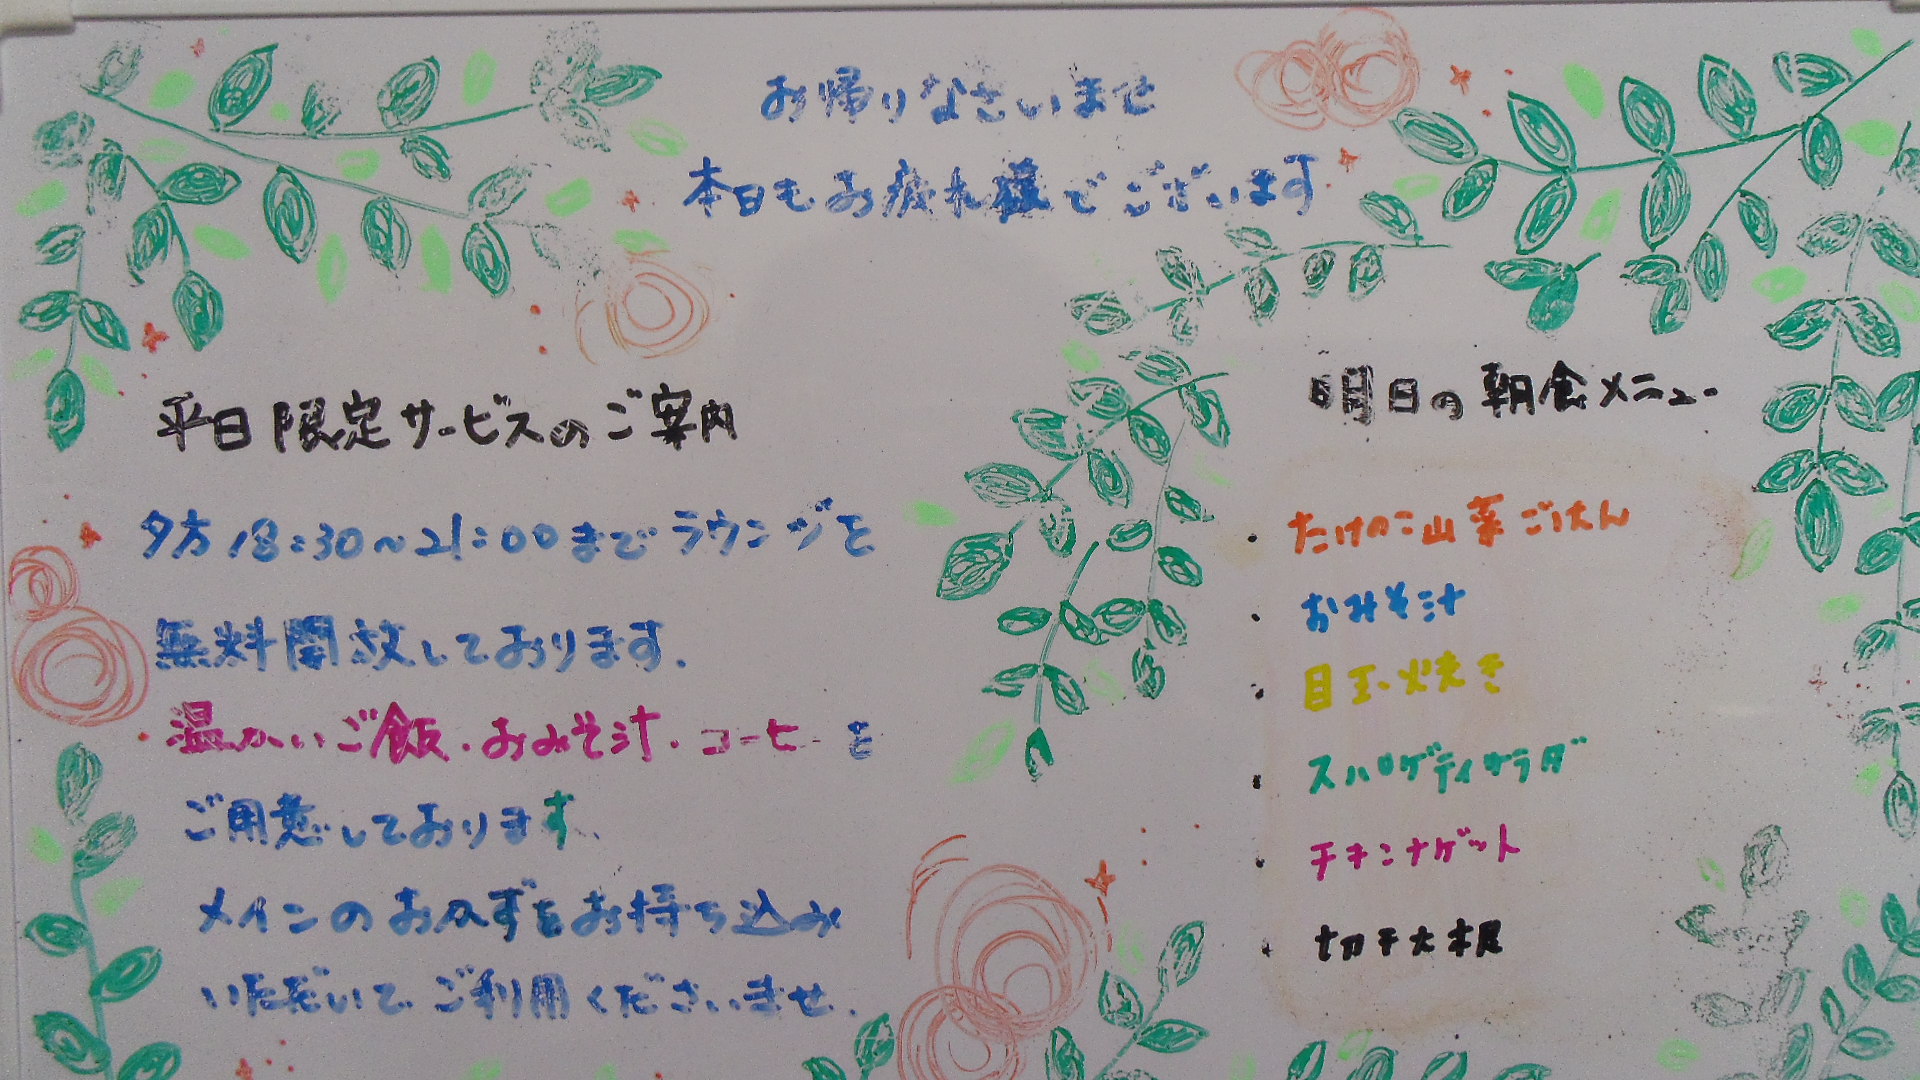 お帰りなさいませ
本日もお疲れ様でございます
平日限定サービスのご案内
夕方18:30~21:00までラウンジを
無料開放しております.
温かいご飯.おみそ汁.コーヒーを
ご用意しております、
メインのおかずをお持ち込み
いただいてご利用くださいませ.
明日の朝食メニュー
・たけのこ山菜ごはん
・おみそ汁
・目玉焼き
・スパゲティサラダ
・チキンナゲット
・切干大根